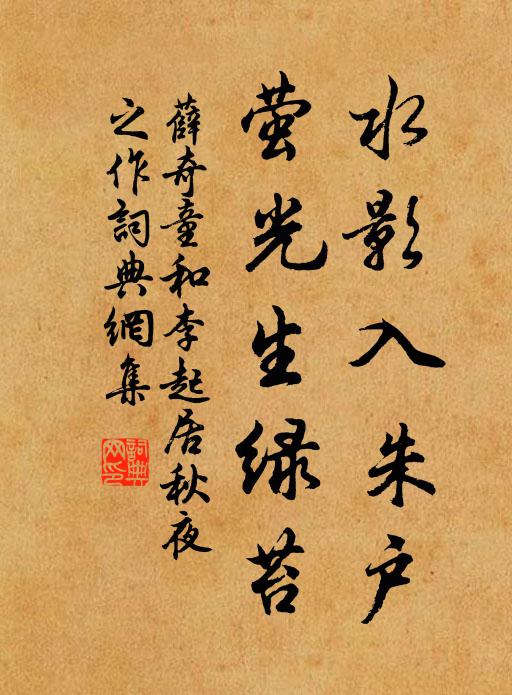 水影入朱户
萤光生绿苔
薛奇童和李起居秋夜
之作詞典網集
詞典
网印